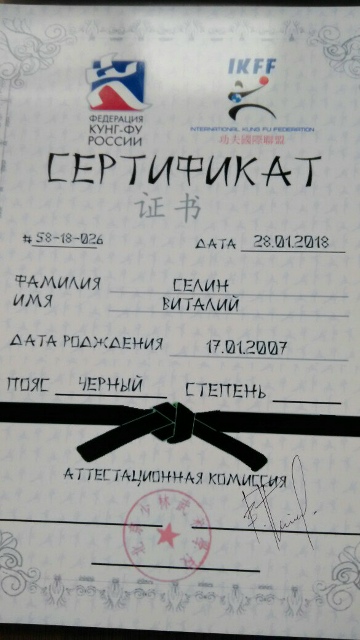 ФЕДЕРАЦИЯ
КУНГ-ФУ
РОССИИ
IKFF
INTERNATIONAL KUNG FU FEDERATION
功夫國際聯盟
СЕРТИФИКАТ
证书
#58-18-026
ДАТА 28.01.2018
ФАМИЛИЯ СЕЛИН
ИМЯ ВИТАЛИЙ
ДАТА РОДЖДЕНИЯ 17.01.2007
ПОЯС ЧЕРНЫЙ СТЕПЕНЬ
АТТЕСТАЦИОННАЯ КОМИССИЯ
少林武